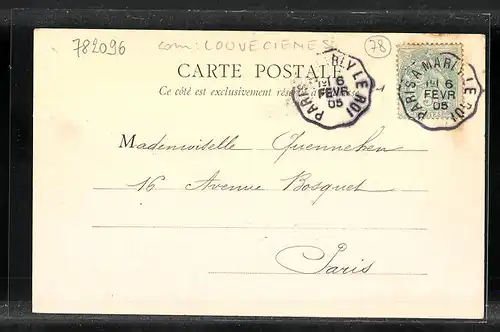 782096 com: LOUVECIENES 78
CARTE POSTALE
Ce côté est exclusivement réservé à
PARIS A MARLY LE ROI
6
FEVR
05
PARIS A MARLY LE ROI
6
FEVR
05
Mademoiselle Quennehen
16 Avenue Bosquet
Paris